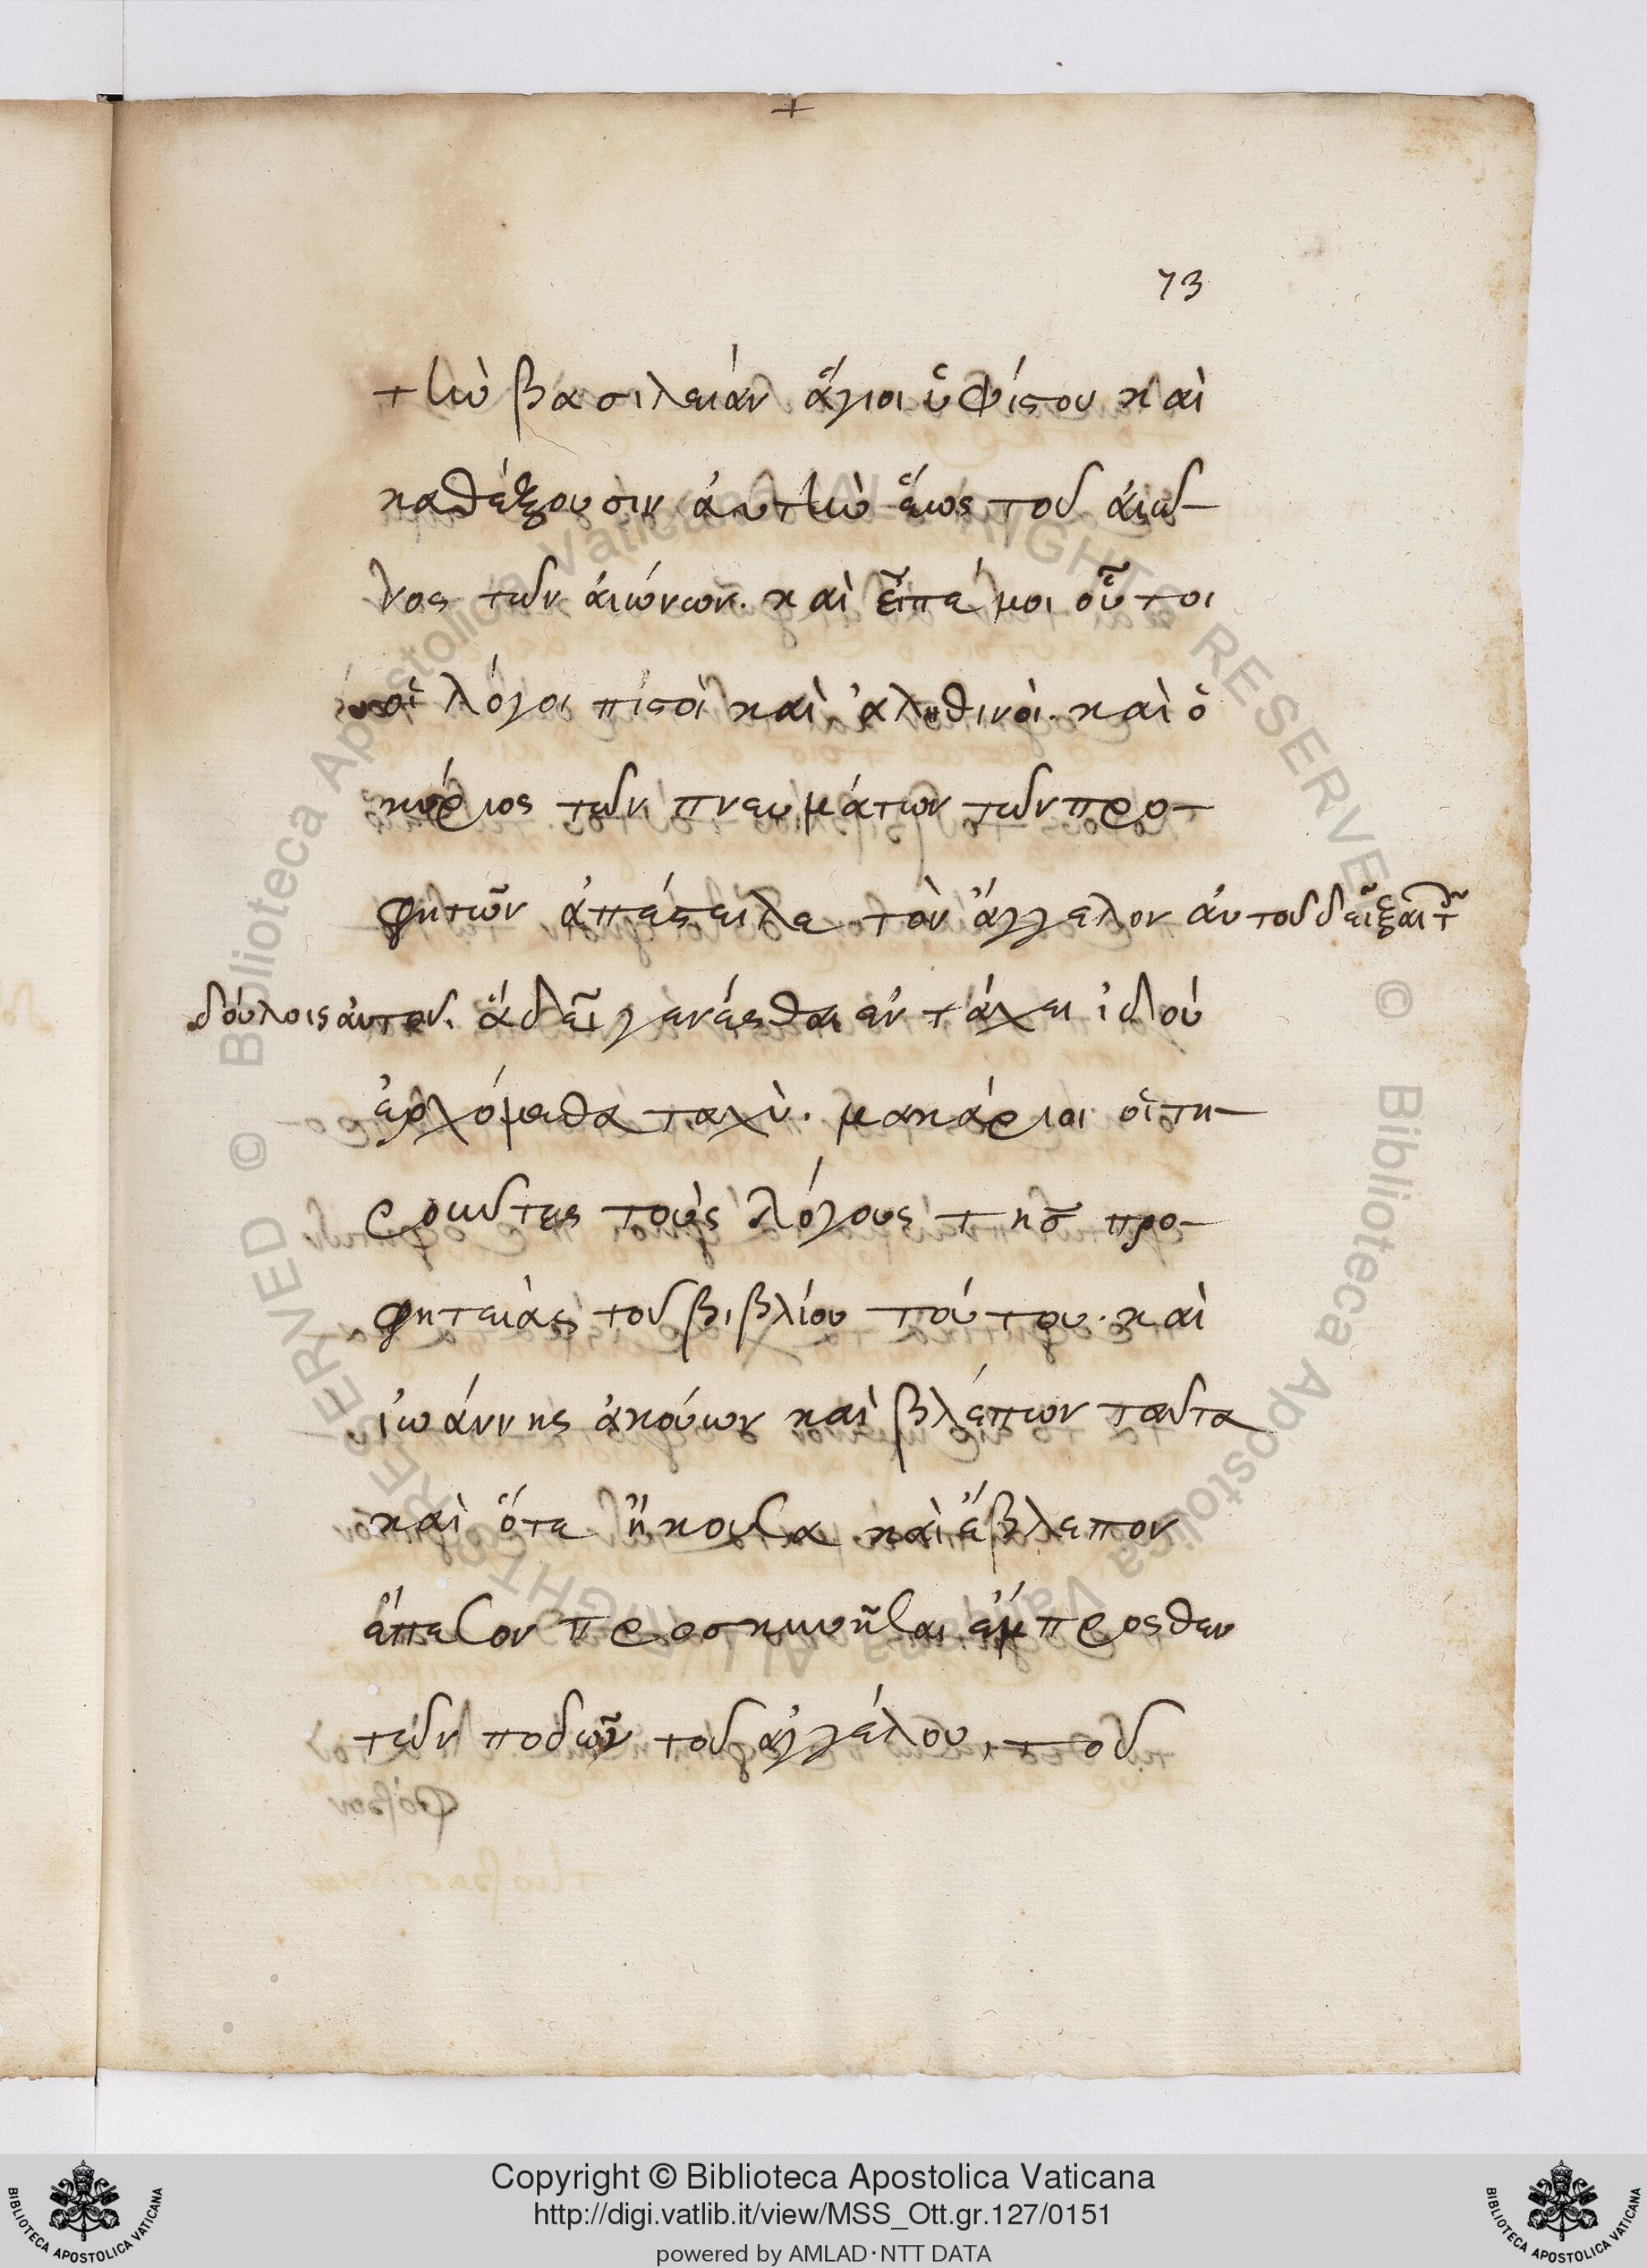 73
τὴν βασιλείαν ἅγιοι ὑψίστου καὶ
καθέξουσιν ἀυτὴν ἕως τοῦ ἀιῶ-
νος τῶν ἀιώνων. καὶ εἶπέ μοι οὗτοι
οἱ λόγοι πιστοὶ καὶ ἀληθινοὶ. καὶ ὁ
κύριος τῶν πνευμάτων τῶν προ-
φητῶν ἀπέστειλε τὸν ἄγγελον ἀυτοῦ δεῖξαι τ
δούλοις ἀυτοῦ. ἅ δεῖ γενέσθαι ἐν τάχει ἰδού
ἐρχόμεθα ταχὺ. μακάριοι οἱ τη-
ροῦντες τοὺς λόγους τῆς προ-
φητείας τοῦ βιβλίου τούτου. καὶ
ἰωάννης ἀκούων καὶ βλέπων ταῦτα
καὶ ὅτε ἤκουσα καὶ ἔβλεπον
ἔπεσον προσκυνῆσαι ἔμπροσθεν
τῶν ποδῶν τοῦ ἀγγέλου, τοῦ
Copyright © Biblioteca Apostolica Vaticana
http://digi.vatlib.it/view/MSS_Ott.gr.127/0151
powered by AMLAD·NTT DATA
BIBLIOTECA APOSTOLICA VATICANA
BIBLIOTECA APOSTOLICA VATICANA